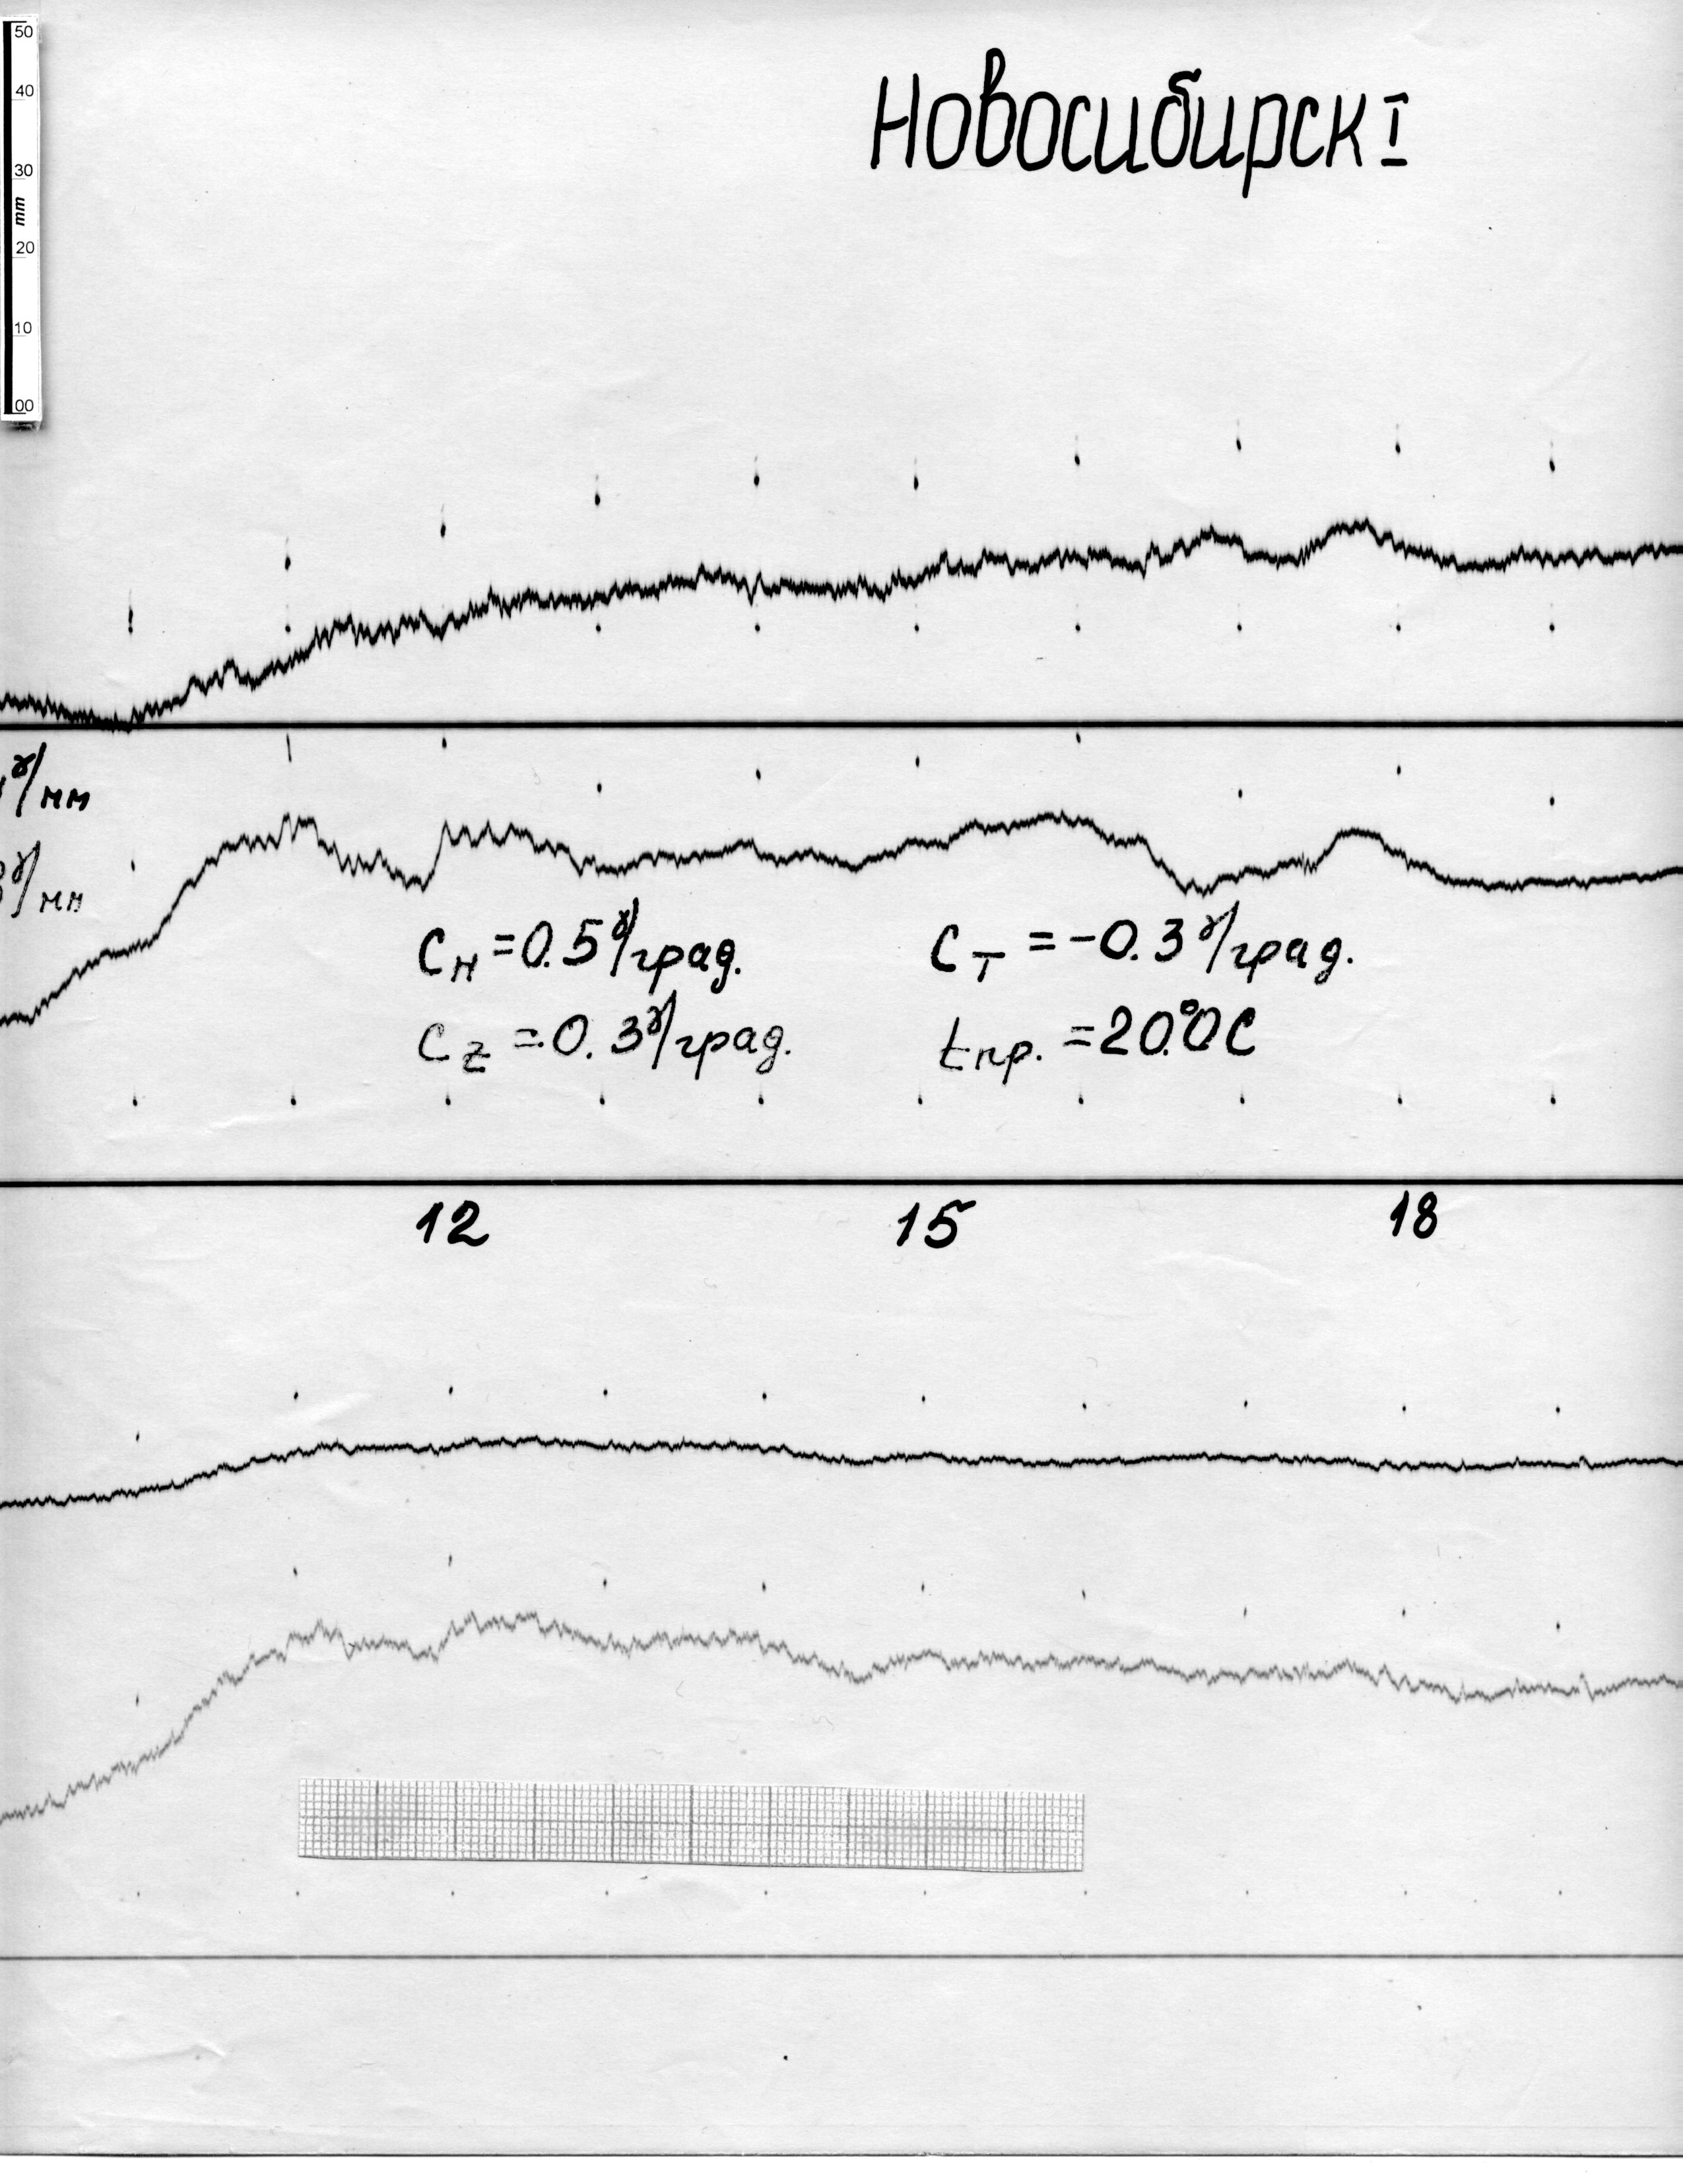 50
40
30
mm
20
10
00
Новосибирск I
γ/мм
γ/мм
Cн = 0.5 γ/град.
Cт = -0.3 γ/град.
Cz = 0.3 γ/град.
tпр. = 20.°0 C
12
15
18